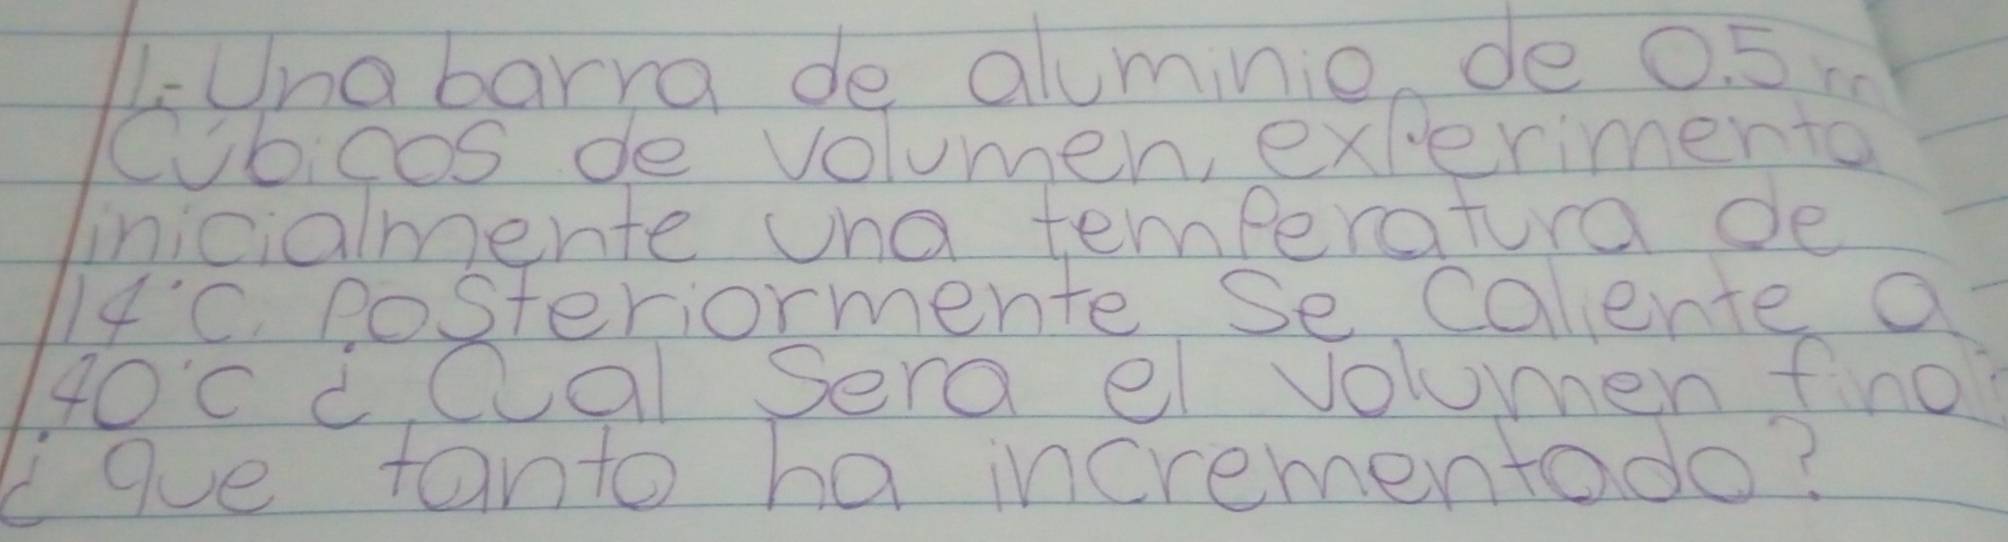 1.- Una barra de aluminio de 0.5 m
Cúbicos de volumen, experimenta
inicialmente una temperatura de
14°C. Posteriormente se caliente a
40°C ¿Cual Sera el volumen final
¿que tanto ha incrementado?